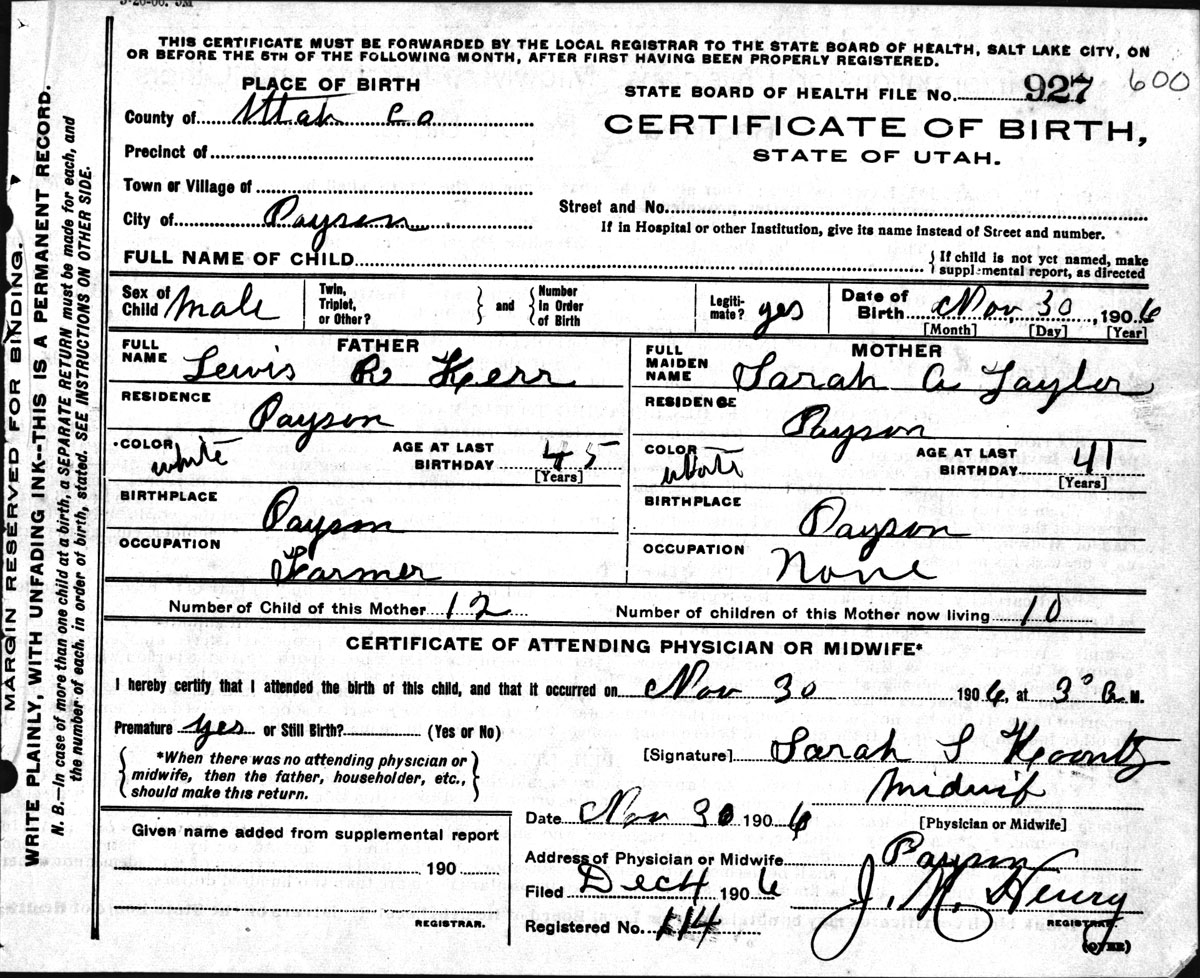 3-26-06. 5M
THIS CERTIFICATE MUST BE FORWARDED BY THE LOCAL REGISTRAR TO THE STATE BOARD OF HEALTH, SALT LAKE CITY, ON
OR BEFORE THE 5TH OF THE FOLLOWING MONTH, AFTER FIRST HAVING BEEN PROPERLY REGISTERED.
PLACE OF BIRTH
County of Utah Co
Precinct of
Town or Village of
City of Payson
STATE BOARD OF HEALTH FILE No. 927 600
CERTIFICATE OF BIRTH,
STATE OF UTAH.
Street and No.
If in Hospital or other Institution, give its name instead of Street and number.
FULL NAME OF CHILD
If child is not yet named, make
supplemental report, as directed
Sex of
Child Male
Twin,
Triplet,
or Other?
and
Number
in Order
of Birth
Legiti-
mate? yes
Date of
Birth Nov. 30, 1906
[Month] [Day] [Year]
FATHER
FULL
NAME Lewis R Kerr
RESIDENCE
Payson
COLOR
white
AGE AT LAST
BIRTHDAY 45
[Years]
BIRTHPLACE
Payson
OCCUPATION
Farmer
MOTHER
FULL
MAIDEN
NAME Sarah A Tayler
RESIDENCE
Payson
COLOR
white
AGE AT LAST
BIRTHDAY 41
[Years]
BIRTHPLACE
Payson
OCCUPATION
None
Number of Child of this Mother 12
Number of children of this Mother now living 10
CERTIFICATE OF ATTENDING PHYSICIAN OR MIDWIFE*
I hereby certify that I attended the birth of this child, and that it occurred on Nov 30 1906, at 3° A. M.
Premature yes or Still Birth? (Yes or No)
*When there was no attending physician or
midwife, then the father, householder, etc.,
should make this return.
[Signature] Sarah S Koontz
Midwif
[Physician or Midwife]
Date Nov 30 1906
Address of Physician or Midwife Payson
Filed Dec 4 1906
J. M. Henry
REGISTRAR.
Registered No. 114
(OVER)
Given name added from supplemental report
190
REGISTRAR.
MARGIN RESERVED FOR BINDING.
WRITE PLAINLY, WITH UNFADING INK--THIS IS A PERMANENT RECORD.
N. B.—In case of more than one child at a birth, a SEPARATE RETURN must be made for each, and
the number of each, in order of birth, stated. SEE INSTRUCTIONS ON OTHER SIDE.